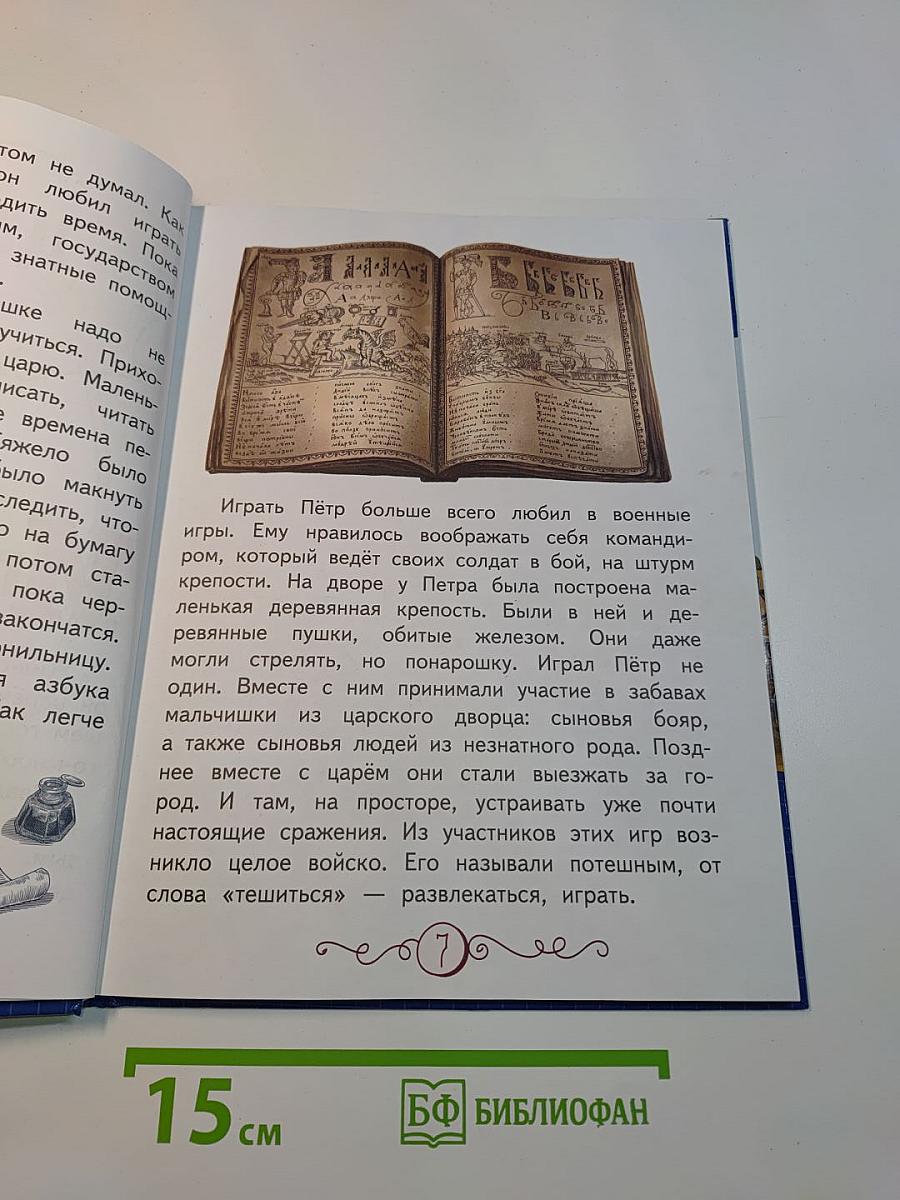 том не думал. Как
он любил играть
дить время. Пока
м, государством
знатные помощ-
шке надо не
учиться. Прихо-
царю. Малень-
писать, читать
е времена пе-
яжело было
было макнуть
следить, что-
о на бумагу
потом ста-
пока чер-
закончатся.
рнильницу.
я азбука
так легче
Играть Пётр больше всего любил в военные
игры. Ему нравилось воображать себя команди-
ром, который ведёт своих солдат в бой, на штурм
крепости. На дворе у Петра была построена ма-
ленькая деревянная крепость. Были в ней и де-
ревянные пушки, обитые железом. Они даже
могли стрелять, но понарошку. Играл Пётр не
один. Вместе с ним принимали участие в забавах
мальчишки из царского дворца: сыновья бояр,
а также сыновья людей из незнатного рода. Позд-
нее вместе с царём они стали выезжать за го-
род. И там, на просторе, устраивать уже почти
настоящие сражения. Из участников этих игр воз-
никло целое войско. Его называли потешным, от
слова «тешиться» — развлекаться, играть.
7
15 см
БФ БИБЛИОФАН